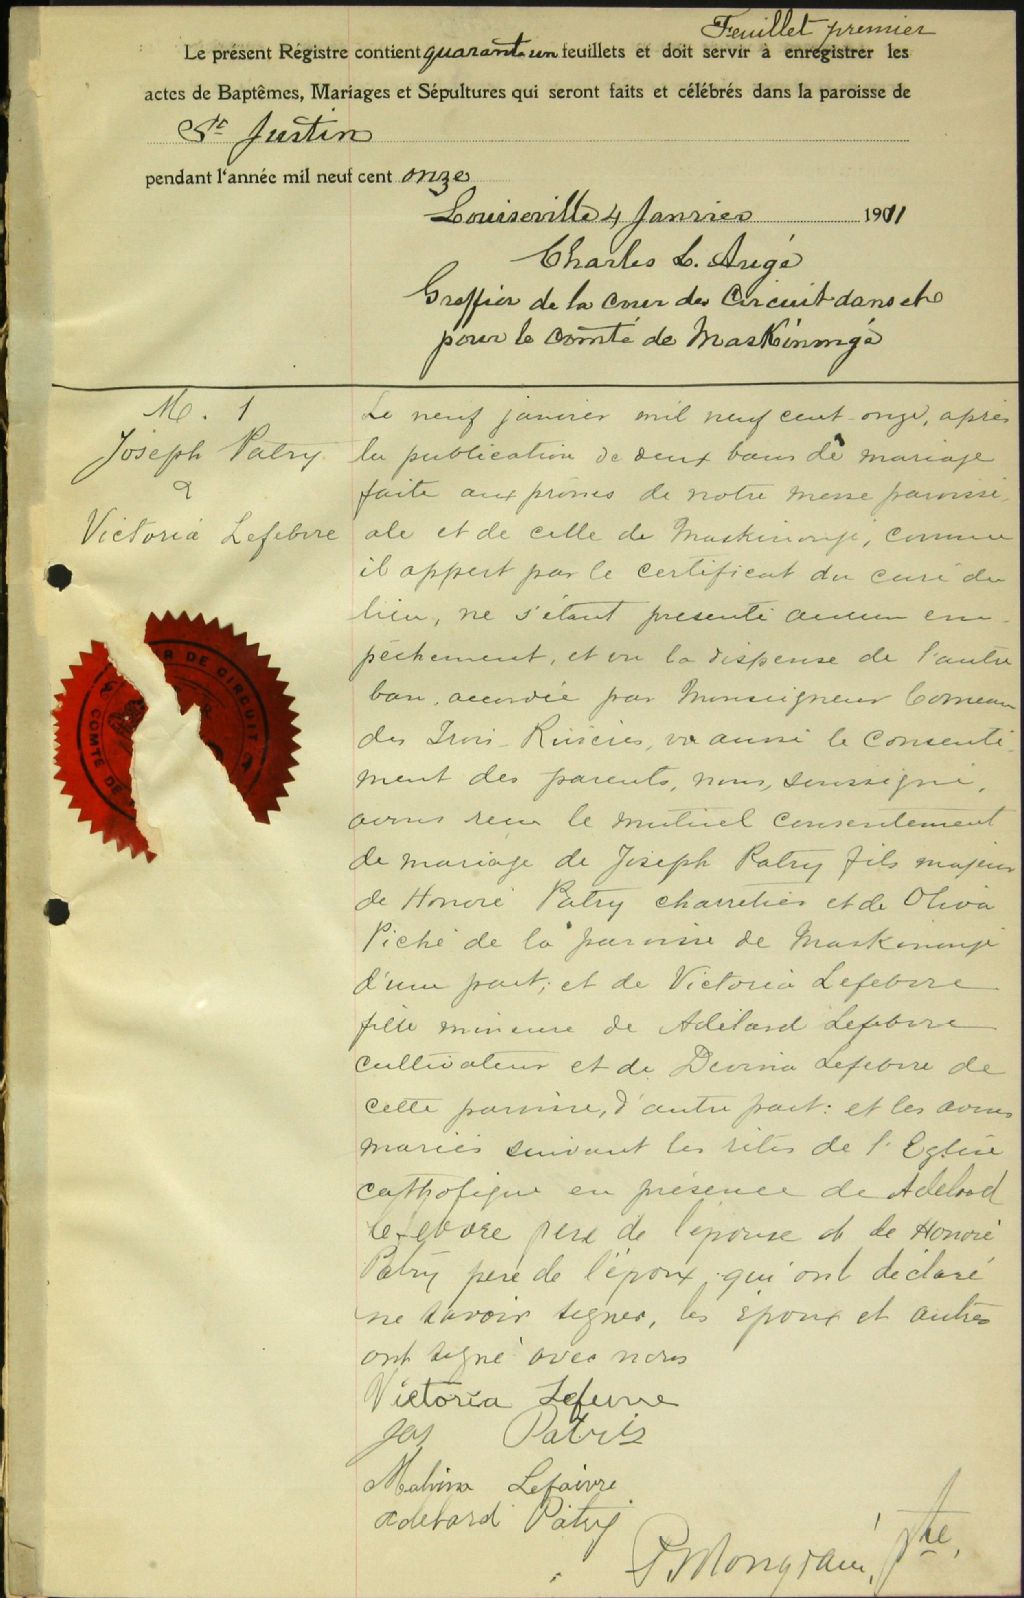 Feuillet premier
Le présent Régistre contient quarante un feuillets et doit servir à enregistrer les
actes de Baptêmes, Mariages et Sépultures qui seront faits et célébrés dans la paroisse de
St Justin
pendant l'année mil neuf cent onze
Louiseville 4 Janvier 1911
Charles L. Augé
Greffier de la Cour de Circuit dans et
pour le comté de Maskinongé
M. 1
Joseph Patry
&
Victoria Lefebvre
Le neuf janvier mil neuf cent onze, après
la publication de deux bans de mariage
faite aux prônes de notre messe paroissi-
ale et de celle de Maskinongé, comme
il appert par le certificat du curé du
lieu, ne s'étant présenté aucun em-
pêchement, et vu la dispense de l'autre
ban, accordée par Monseigneur Comeau
des Trois-Rivières, vu aussi le consente-
ment des parents, nous, soussigné,
avons reçu le mutuel consentement
de mariage de Joseph Patry fils majeur
de Honoré Patry charretier et de Oliva
Piché de la paroisse de Maskinongé
d'une part; et de Victoria Lefebvre
fille mineure de Adélard Lefebvre
cultivateur et de Devina Lefebvre de
cette paroisse, d'autre part: et les avons
mariés suivant les rites de l'Eglise
catholique en présence de Adelard
Lefebvre père de l'épouse et de Honoré
Patry père de l'époux qui ont déclaré
ne savoir signer, les époux et autres
ont signé avec nous
Victoria Lefevre
Jos Patris
Malvina Lefaivre
Adelard Patry
P. Mongrain, ptre,
R DE CIRCUIT
COMTE DE